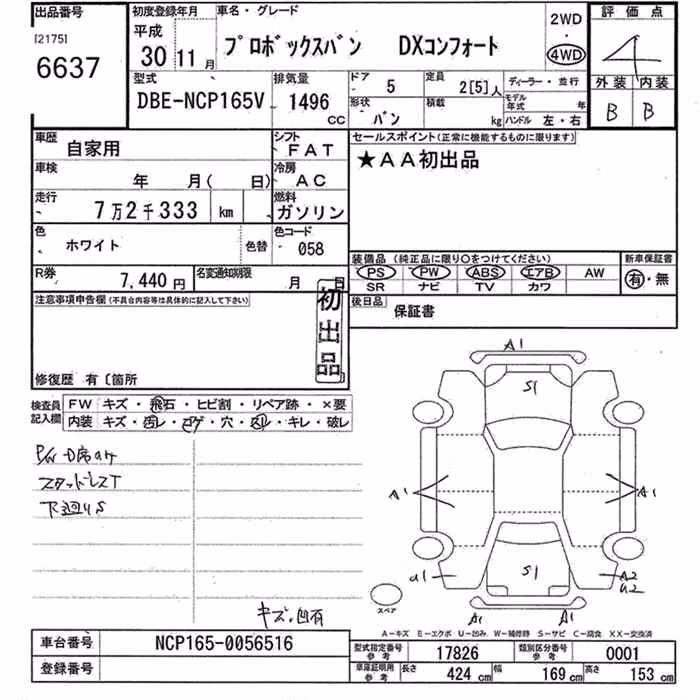 出品番号
[2175]
6637
初度登録年月
平成
30 11 月
車名・グレード
プロボックスバン DXコンフォート
2WD
・
4WD
評価点
4
外装 内装
B B
型式
DBE-NCP165V
排気量
1496
CC
ドア
5
定員
2[5]人
形状
バン
積載
kg
ディーラー・並行
モデル年式 年
ハンドル 左・右
車歴
自家用
シフト
FAT
車検
年 月( 日)
冷房
AC
走行
7万2千333 km
燃料
ガソリン
色
ホワイト
色替
色コード
058
R券
7,440 円
名変通知期限
月 日
セールスポイント(正常に機能するものに限ります)
★AA初出品
装備品(純正品に限り○をつけてください)
PS PW ABS エアB AW
SR ナビ TV カワ
新車保証書
有・無
後日品
保証書
注意事項申告欄(不具合内容等は具体的に記入して下さい)
初出品
修復歴 有〔箇所
検査員
記入欄
FW キズ・飛石・ヒビ割・リペア跡・×要
内装 キズ・汚レ・コゲ・穴・スレ・キレ・破レ
スタッドレスT
下廻りS
キズ、凹有
A1
S1
A1
A1
S1
a1
A2
u2
A1
A1
スペア
A-キズ E-エクボ U-凹み W-補修跡 S-サビ C-腐食 XX-交換済
車台番号
NCP165-0056516
登録番号
型式指定番号
参考
17826
類別区分番号
参考
0001
車庫証明用
参考
長さ 424 cm 幅 169 cm 高さ 153 cm